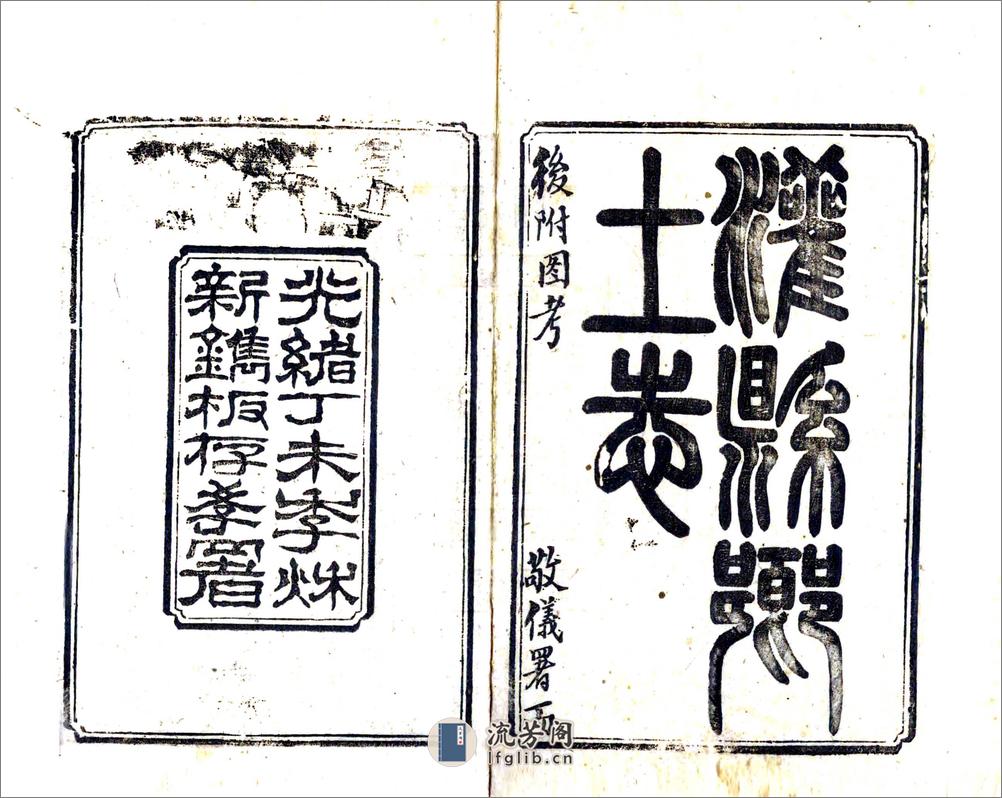 灌縣鄉
土志
後附圖考
敬儀署
光緒丁未季秋
新鐫板存學署
流芳阁
lfglib.cn